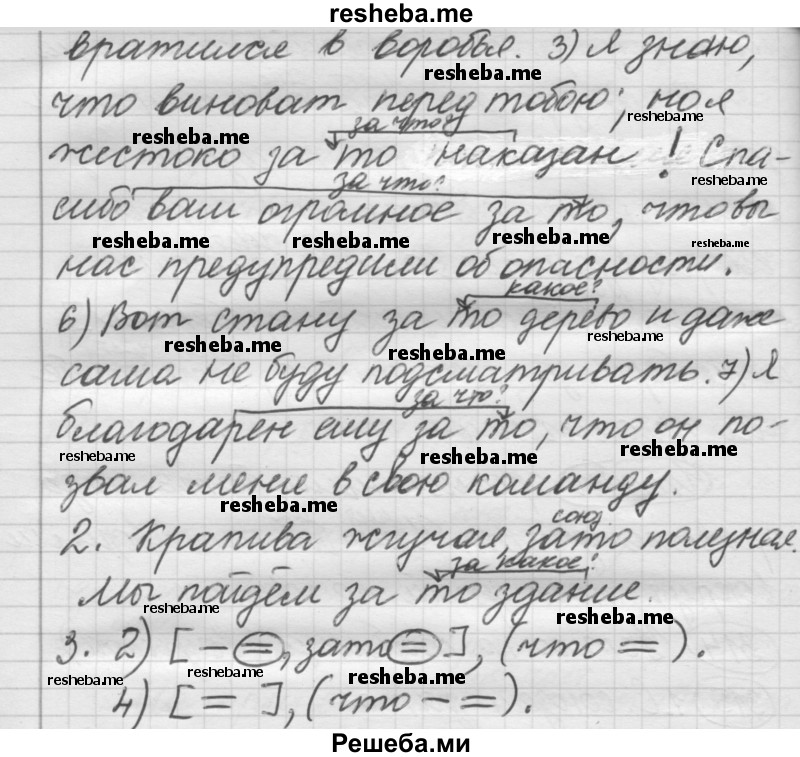 resheba.me
вратился в воробья. 3) Я знаю,
resheba.me
что виноват перед тобою; но я
resheba.me
за что?
resheba.me
жестоко за то наказан! Спа-
resheba.me
за что?
сибо ваш огромное за то, что вы
resheba.me resheba.me resheba.me resheba.me
нас предупредили об опасности.
какое?
6) Вот стану за то дерево и даже
resheba.me resheba.me resheba.me
сама не буду подсматривать. 7) Я
за что?
благодарен ему за то, что он по-
resheba.me resheba.me resheba.me
звал меня в свою команду.
resheba.me
союз
2. Крапива жгучая, зато полезная.
за какое?
Мы пойдём за то здание.
resheba.me resheba.me
3. 2) [ – =, зато = ], (что = ).
resheba.me resheba.me resheba.me
4) [ = ], (что – = ).
Решеба.ми